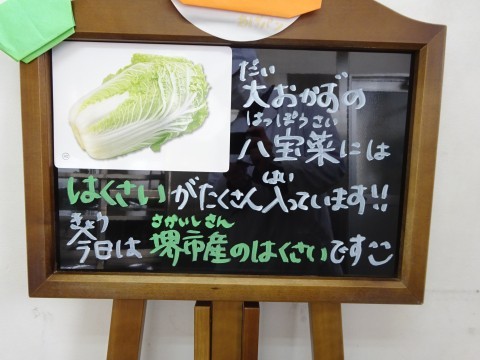 だい
大おかずの
はっぽうさい
八宝菜には
はい
はくさいがたくさん入っています!!
きょう さかいし さん
今日は 堺市産のはくさいです